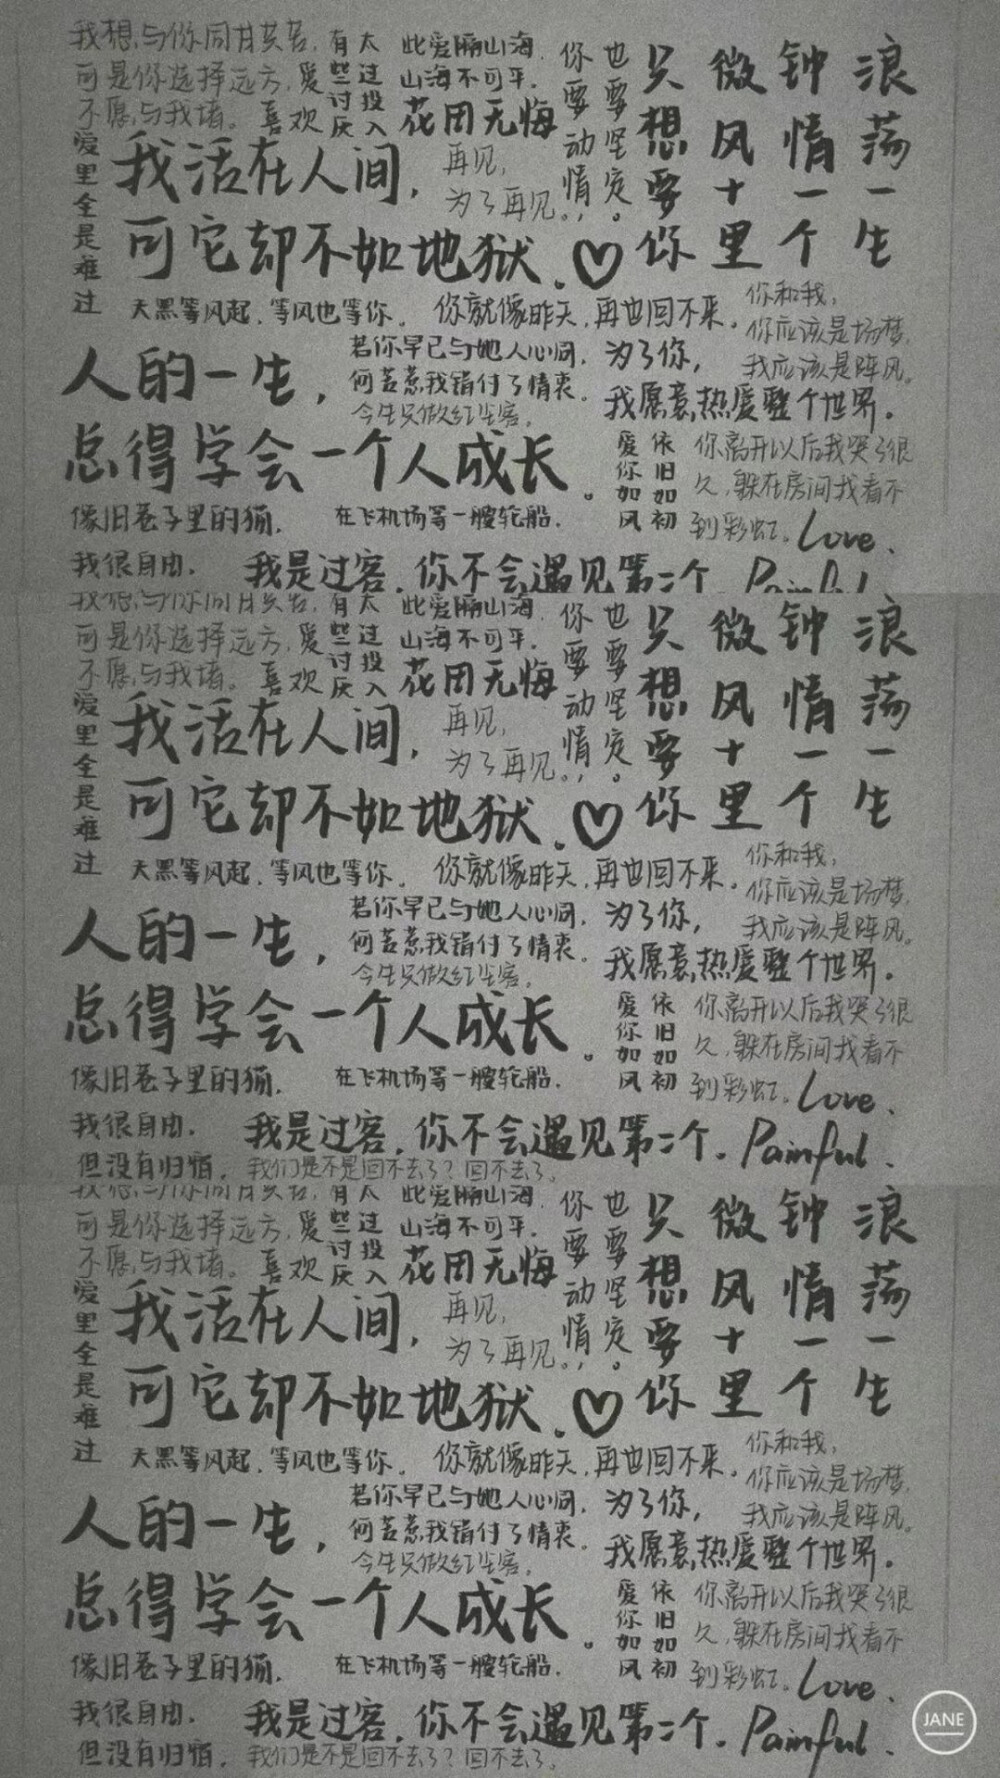 我想与你同甘共苦,
可是你选择远方,
不愿与我堵。
爱里全是难过
喜欢
有些讨厌
太过投入
此爱隔山海,
山海不可平.
花田无悔
你要动情,
也要坚定。
只想要你
微风十里
钟情一个
浪荡一生
我活在人间,
可它却不如地狱.♡
再见,
为了再见。
天黑等风起.等风也等你。
你就像昨天,再也回不来。
你和我,
你应该是场梦,
我应该是阵风。
人的一生,
总得学会一个人成长。
若你早已与她人心同,
何苦惹我错付了情衷。
今生只做红尘客。
为了你,
我愿意热爱整个世界。
爱你如风
依旧如初
你离开以后我哭了很
久,躲在房间我看不
到彩虹。
Love.
像旧巷子里的猫.
在飞机场等一艘轮船.
我很自由.
我是过客.你不会遇见第二个.
Painful
我想与你同甘共苦,
可是你选择远方,
不愿与我堵。
爱里全是难过
喜欢
有些讨厌
太过投入
此爱隔山海,
山海不可平.
花田无悔
你要动情,
也要坚定。
只想要你
微风十里
钟情一个
浪荡一生
我活在人间,
可它却不如地狱.♡
再见,
为了再见。
天黑等风起.等风也等你。
你就像昨天,再也回不来。
你和我,
你应该是场梦,
我应该是阵风。
人的一生,
总得学会一个人成长。
若你早已与她人心同,
何苦惹我错付了情衷。
今生只做红尘客。
为了你,
我愿意热爱整个世界。
爱你如风
依旧如初
你离开以后我哭了很
久,躲在房间我看不
到彩虹。
Love.
像旧巷子里的猫.
在飞机场等一艘轮船.
我很自由.
但没有归宿.
我是过客.你不会遇见第二个.
Painful.
我们是不是回不去了?回不去了。
我想与你同甘共苦,
可是你选择远方,
不愿与我堵。
爱里全是难过
喜欢
有些讨厌
太过投入
此爱隔山海,
山海不可平.
花田无悔
你要动情,
也要坚定。
只想要你
微风十里
钟情一个
浪荡一生
我活在人间,
可它却不如地狱.♡
再见,
为了再见。
天黑等风起.等风也等你。
你就像昨天,再也回不来。
你和我,
你应该是场梦,
我应该是阵风。
人的一生,
总得学会一个人成长。
若你早已与她人心同,
何苦惹我错付了情衷。
今生只做红尘客。
为了你,
我愿意热爱整个世界。
爱你如风
依旧如初
你离开以后我哭了很
久,躲在房间我看不
到彩虹。
Love.
像旧巷子里的猫.
在飞机场等一艘轮船.
我很自由.
但没有归宿.
我是过客.你不会遇见第二个.
Painful.
我们是不是回不去了?回不去了。
JANE